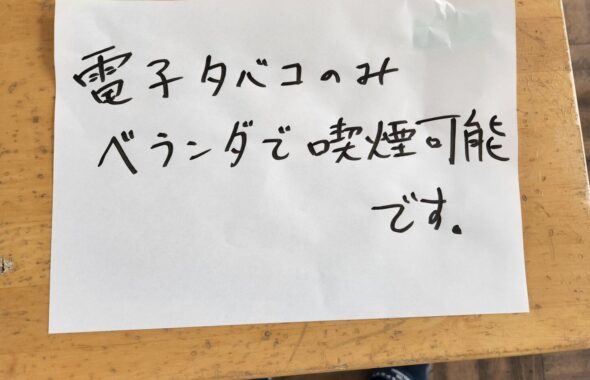 電子タバコのみ
ベランダで喫煙可能
です。